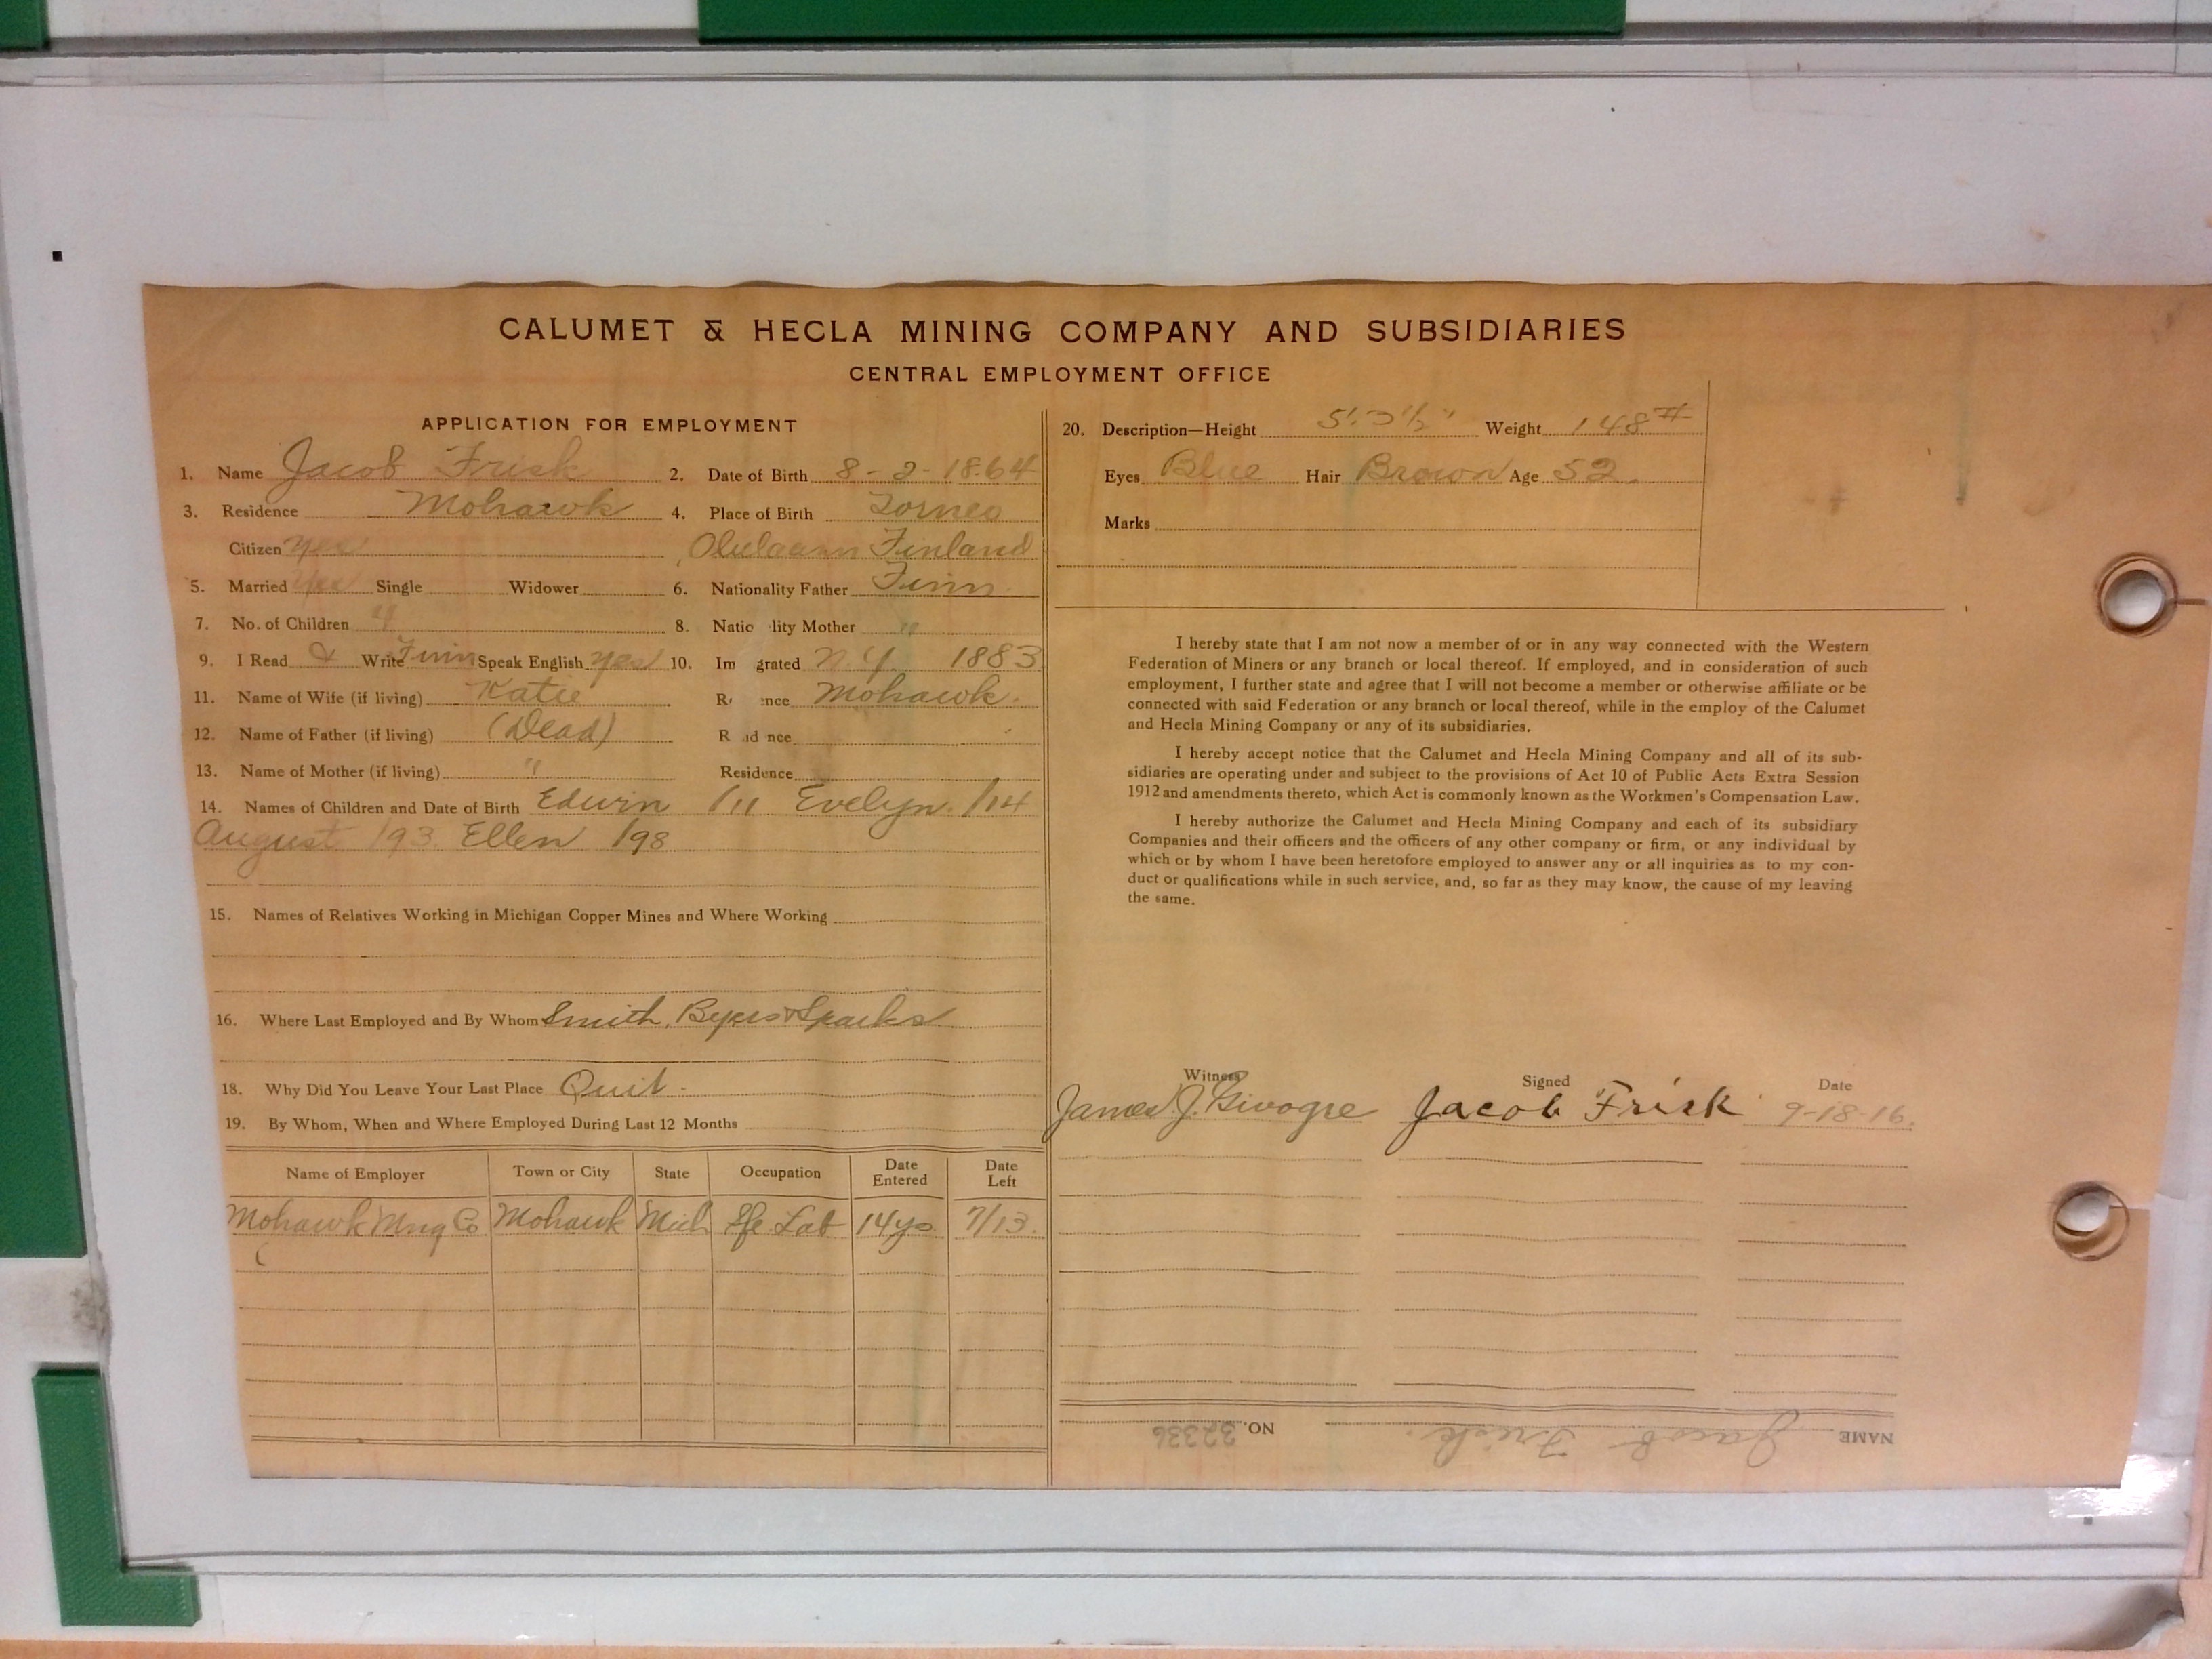 CALUMET & HECLA MINING COMPANY AND SUBSIDIARIES
CENTRAL EMPLOYMENT OFFICE
APPLICATION FOR EMPLOYMENT
1. Name Jacob Frisk 2. Date of Birth 8-2-1864
3. Residence Mohawk 4. Place of Birth Torneo
Citizen yes Finland
5. Married yes Single Widower 6. Nationality Father Finn
7. No. of Children 4 8. Natio lity Mother "
9. I Read & Write Finn Speak English yes 10. Im grated N.Y. 1883
11. Name of Wife (if living) Katie R nce Mohawk.
12. Name of Father (if living) (Dead) R id nce
13. Name of Mother (if living) " Residence
14. Names of Children and Date of Birth Edwin /11 Evelyn. /14
August /93. Ellen /98
15. Names of Relatives Working in Michigan Copper Mines and Where Working
16. Where Last Employed and By Whom Smith, Byers & Sparks
18. Why Did You Leave Your Last Place Quit.
19. By Whom, When and Where Employed During Last 12 Months
Name of Employer Town or City State Occupation Date Entered Date Left
Mohawk Mng Co Mohawk Mich Sfe Lab 14 ys 7/13.
20. Description—Height 5'.3½" Weight 148#
Eyes Blue Hair Brown Age 52.
Marks
I hereby state that I am not now a member of or in any way connected with the Western
Federation of Miners or any branch or local thereof. If employed, and in consideration of such
employment, I further state and agree that I will not become a member or otherwise affiliate or be
connected with said Federation or any branch or local thereof, while in the employ of the Calumet
and Hecla Mining Company or any of its subsidiaries.
I hereby accept notice that the Calumet and Hecla Mining Company and all of its sub-
sidiaries are operating under and subject to the provisions of Act 10 of Public Acts Extra Session
1912 and amendments thereto, which Act is commonly known as the Workmen's Compensation Law.
I hereby authorize the Calumet and Hecla Mining Company and each of its subsidiary
Companies and their officers and the officers of any other company or firm, or any individual by
which or by whom I have been heretofore employed to answer any or all inquiries as to my con-
duct or qualifications while in such service, and, so far as they may know, the cause of my leaving
the same.
Witness Signed Date
James J. Jacob Frisk 9-18-16.
NAME Jacob Frisk. NO. 32336